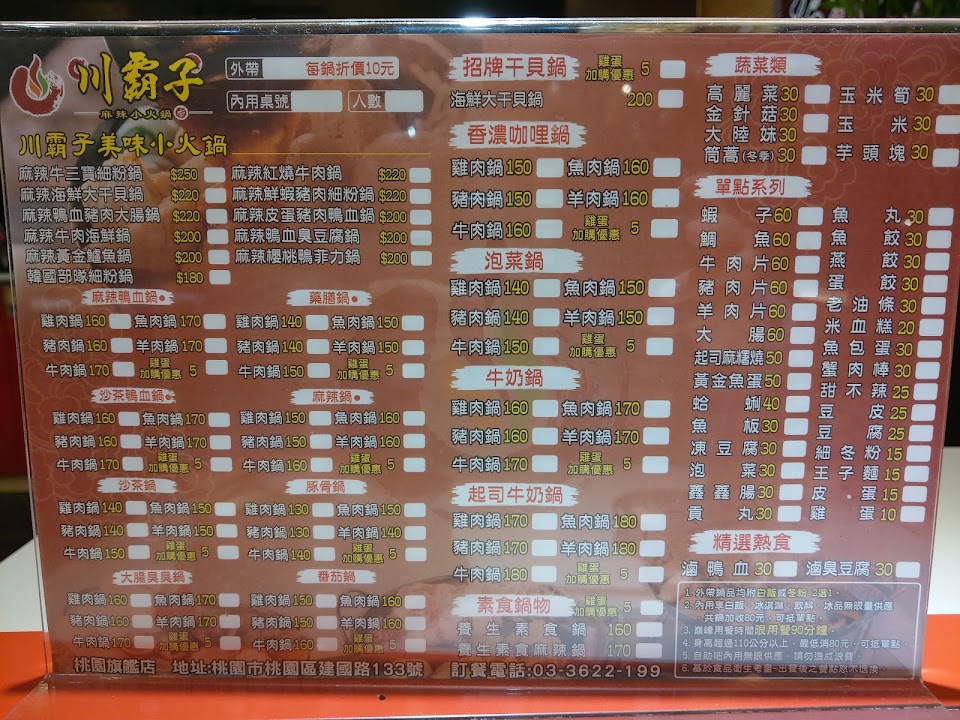 川霸子
麻辣小火鍋
外帶 每鍋折價10元
內用桌號 人數
川霸子美味小火鍋
麻辣牛三寶細粉鍋 $250
麻辣海鮮大干貝鍋 $220
麻辣鴨血豬肉大腸鍋 $220
麻辣牛肉海鮮鍋 $200
麻辣黃金鱸魚鍋 $200
韓國部隊細粉鍋 $180
麻辣紅燒牛肉鍋 $220
麻辣鮮蝦豬肉細粉鍋 $220
麻辣皮蛋豬肉鴨血鍋 $200
麻辣鴨血臭豆腐鍋 $200
麻辣櫻桃鴨菲力鍋 $200
麻辣鴨血鍋
雞肉鍋 160 魚肉鍋 170
豬肉鍋 160 羊肉鍋 170
牛肉鍋 170 雞蛋加購優惠 5
藥膳鍋
雞肉鍋 140 魚肉鍋 150
豬肉鍋 140 羊肉鍋 150
牛肉鍋 150 雞蛋加購優惠 5
沙茶鴨血鍋
雞肉鍋 160 魚肉鍋 170
豬肉鍋 160 羊肉鍋 170
牛肉鍋 170 雞蛋加購優惠 5
麻辣鍋
雞肉鍋 150 魚肉鍋 160
豬肉鍋 150 羊肉鍋 160
牛肉鍋 160 雞蛋加購優惠 5
沙茶鍋
雞肉鍋 140 魚肉鍋 150
豬肉鍋 140 羊肉鍋 150
牛肉鍋 150 雞蛋加購優惠 5
豚骨鍋
雞肉鍋 130 魚肉鍋 150
豬肉鍋 130 羊肉鍋 140
牛肉鍋 140 雞蛋加購優惠 5
大腸臭臭鍋
雞肉鍋 160 魚肉鍋 170
豬肉鍋 160 羊肉鍋 170
牛肉鍋 170 雞蛋加購優惠 5
番茄鍋
雞肉鍋 150 魚肉鍋 160
豬肉鍋 150 羊肉鍋 160
牛肉鍋 160 雞蛋加購優惠 5
招牌干貝鍋 雞蛋加購優惠 5
海鮮大干貝鍋 200
香濃咖哩鍋
雞肉鍋 150 魚肉鍋 160
豬肉鍋 150 羊肉鍋 160
牛肉鍋 160 雞蛋加購優惠 5
泡菜鍋
雞肉鍋 140 魚肉鍋 150
豬肉鍋 140 羊肉鍋 150
牛肉鍋 150 雞蛋加購優惠 5
牛奶鍋
雞肉鍋 160 魚肉鍋 170
豬肉鍋 160 羊肉鍋 170
牛肉鍋 170 雞蛋加購優惠 5
起司牛奶鍋
雞肉鍋 170 魚肉鍋 180
豬肉鍋 170 羊肉鍋 180
牛肉鍋 180 雞蛋加購優惠 5
素食鍋物 雞蛋加購優惠 5
養生素食鍋 160
養生素食麻辣鍋 170
蔬菜類
高麗菜 30
金針菇 30
大陸妹 30
茼蒿(冬季) 30
玉米筍 30
玉米 30
芋頭塊 30
單點系列
蝦子 60
鯛魚 60
牛肉片 60
豬肉片 60
羊肉片 60
大腸 60
起司麻糬燒 50
黃金魚蛋 50
蛤蜊 40
魚板 30
凍豆腐 30
泡菜 30
鑫鑫腸 30
貢丸 30
魚丸 30
魚餃 30
燕餃 30
蛋餃 30
老油條 30
米血糕 20
魚包蛋 30
蟹肉棒 30
甜不辣 25
豆皮 25
豆腐 25
細冬粉 15
王子麵 15
皮蛋 15
雞蛋 10
精選熱食
滷鴨血 30 滷臭豆腐 30
1. 外帶鍋品均附白飯或冬粉 2選1。
2. 內用享白飯、冰淇淋、飲料、冰品無限量供應
，共鍋加收80元，可抵單點。
3. 巔峰用餐時間限用餐90分鐘。
4. 身高超過110公分以上，最低消80元，可抵單點。
5. 自助吧內用無限供應，請勿造成浪費。
6. 基於食品衛生考量，出餐後之餐點恕不退換。
桃園旗艦店 地址:桃園市桃園區建國路133號 訂餐電話:03-3622-199